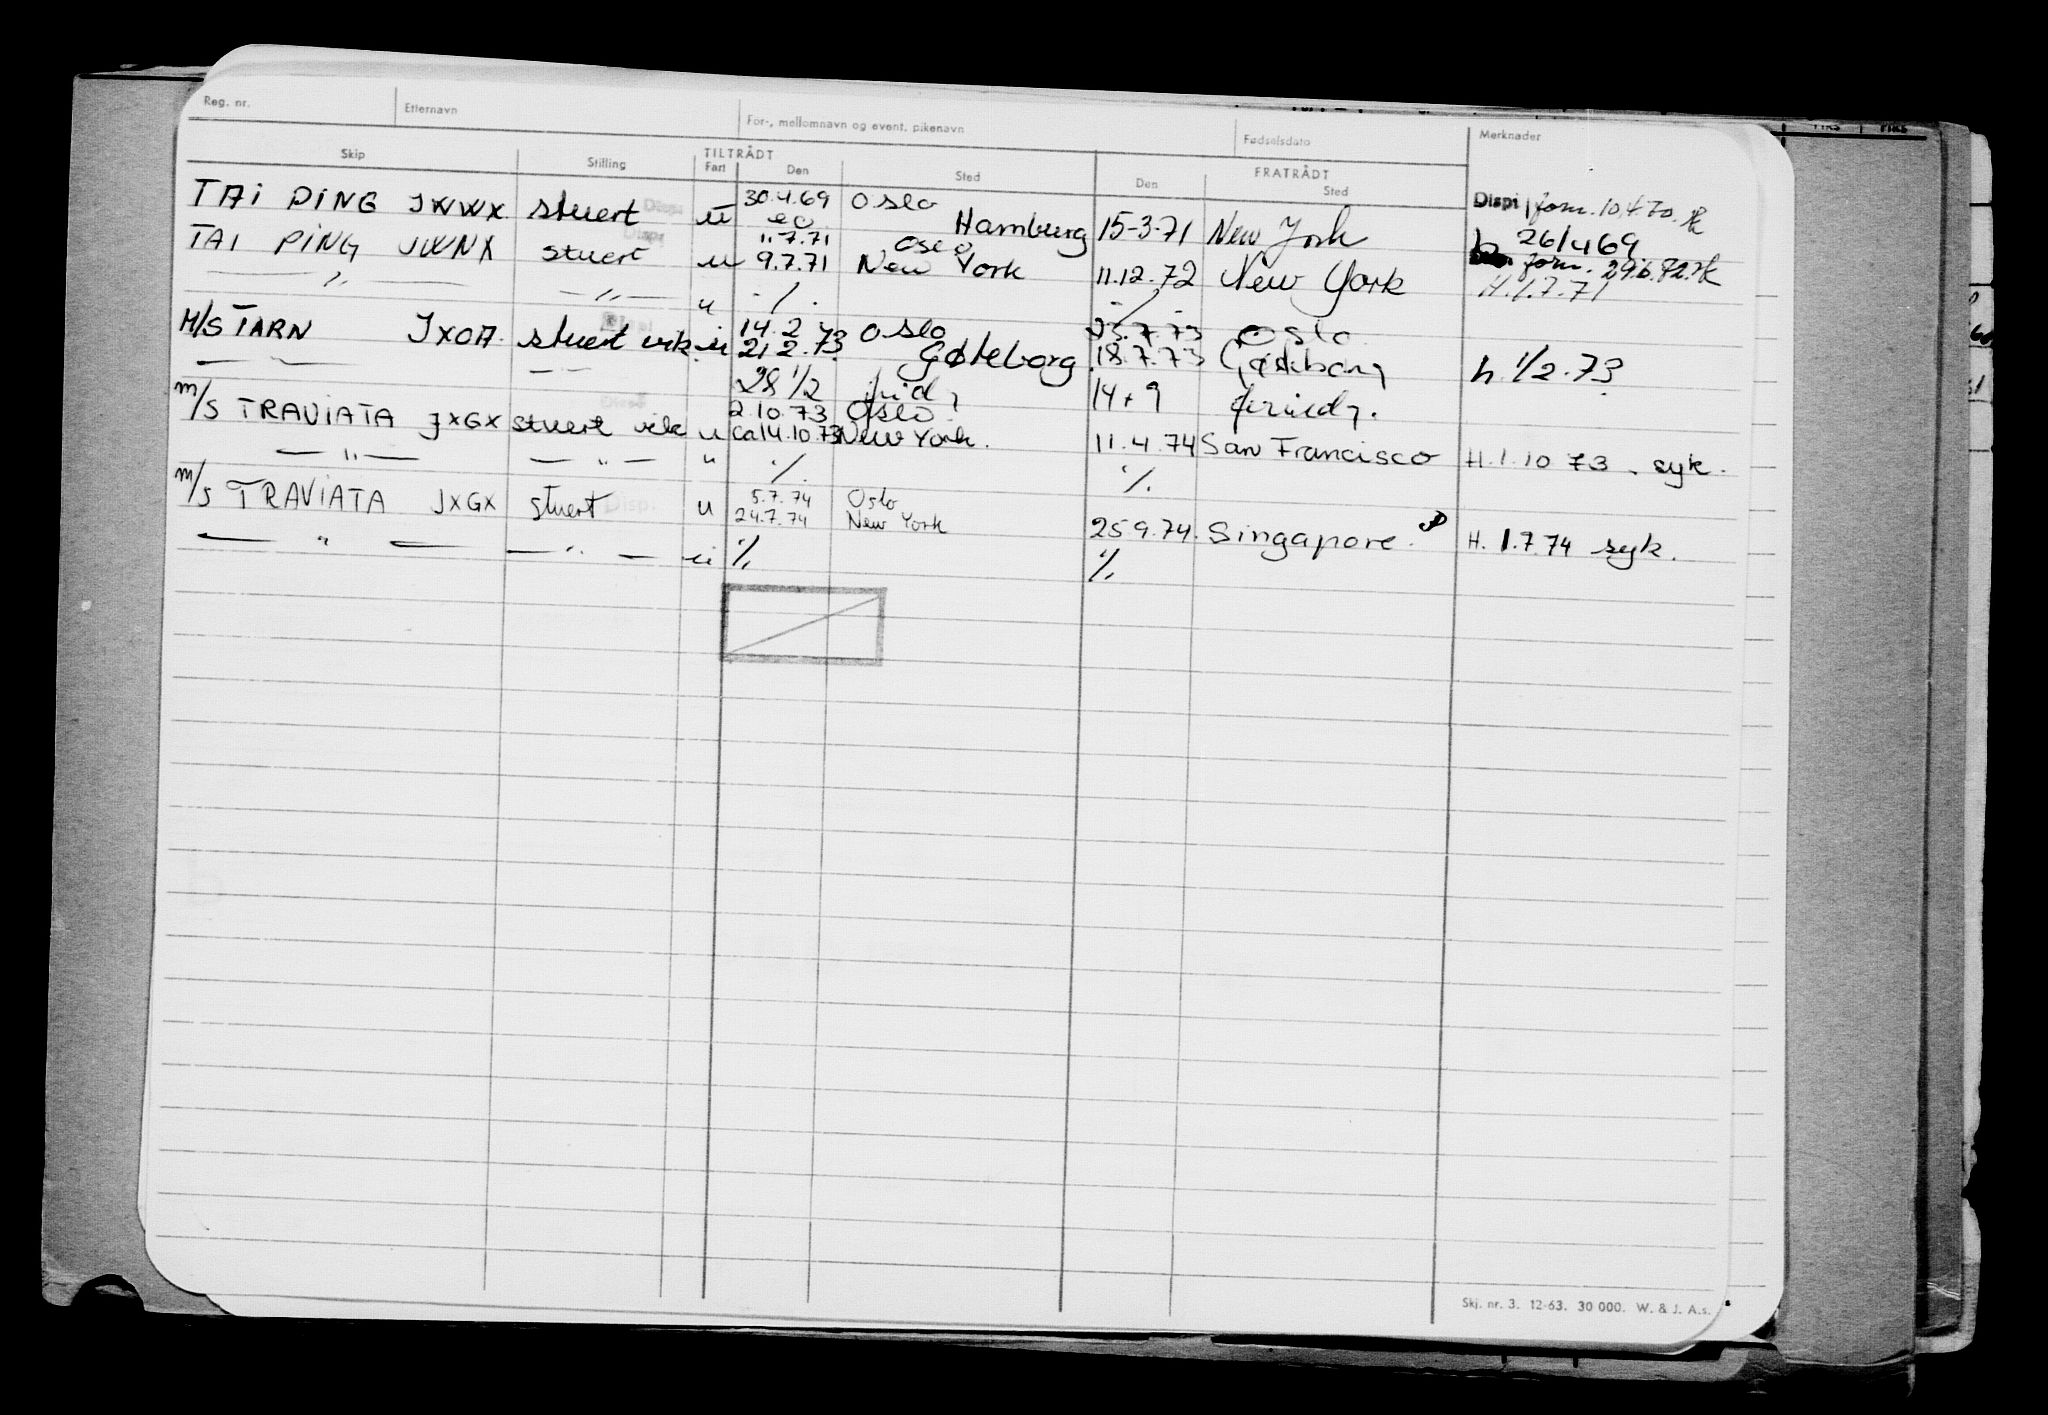 Reg. nr. Etternavn For-, mellomnavn og event. pikenavn Fødselsdato Merknader
Skip Stilling TILTRÅDT Fart Den Sted FRATRÅDT Den Sted
TAI PING JWWX stuert Dispi u 30.4.69 Oslo Dispi form. 10.4.70.
Hamburg 15-3-71 New York h 26/4 69
TAI PING JWNX stuert Dispi u 1.7.71 Oslo form. 29.6.72.
9.7.71 New York 11.12.72 New York H.1.7.71
— " — — " — u ·/· ·/·
M/S TARN JXOA. stuert vik. u 14.2 73 Oslo 23.7.73 Oslo
— — — — 21 2.73 Gøteborg 18.7.73 Gøteborg h. 1/2.73
28 1/2 14 + 9
m/s TRAVIATA JXGX stuert vik u 2.10.73 Oslo
ca 14.10.73 New York. 11.4.74 San Francisco H.1.10 73. syk.
— " — — " — " ·/· ·/·
m/s TRAVIATA JXGX stuert Disp. u 5.7.74 Oslo
24.7.74 New York 25 9.74. Singapore. H. 1.7.74 syk.
— " — — " — u ·/· ·/·
Skj. nr. 3. 12-63. 30 000. W. & J. A.s.